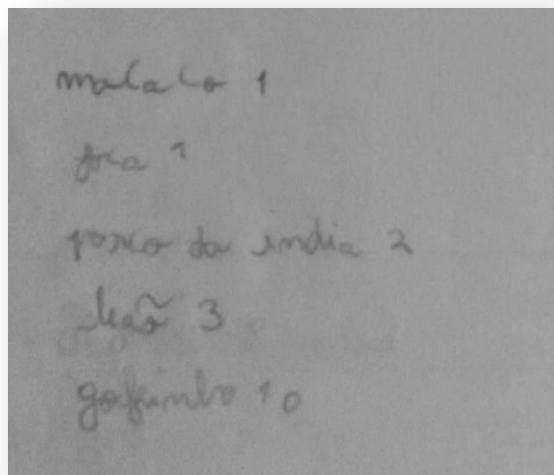 macaco 1
foca 1
porco da india 2
leaõ 3
gofinho 10